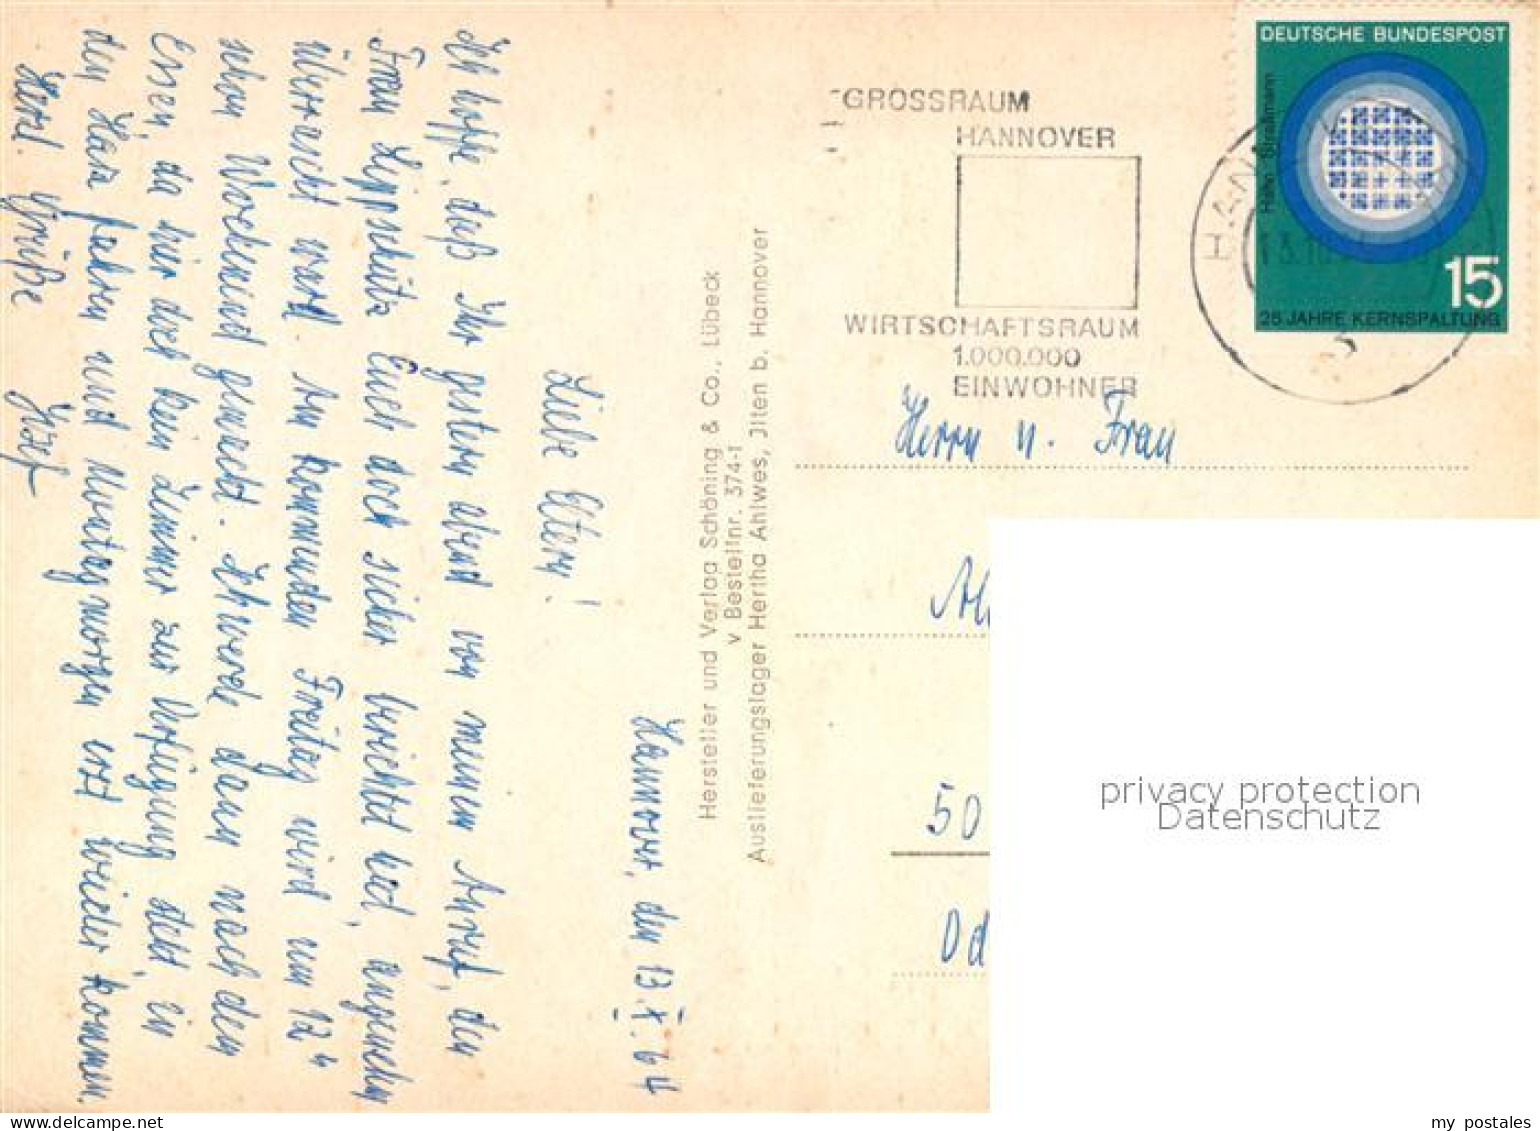 Hannover, den 13.X.64
Liebe Eltern!
Ich hoffe, daß Ihr gestern abend von meinem Anruf, den
Frau Lippschütz Euch doch sicher berichtet hat, angenehm
überrascht ward. Am kommenden Freitag wird um 12ʰ
schon Wochenend gemacht. Ich werde dann nach dem
Essen, da hier doch kein Zimmer zur Verfügung steht, in
den Harz fahren und Montag morgen erst wieder kommen.
Herzl. Grüße
Hersteller und Verlag Schöning & Co., Lübeck
v Bestellnr. 374-1
Auslieferungslager Hertha Ahlwes, Jlten b. Hannover
GROSSRAUM
HANNOVER
WIRTSCHAFTSRAUM
1.000.000
EINWOHNER
DEUTSCHE BUNDESPOST
Hahn Straßmann
15
25 JAHRE KERNSPALTUNG
Herrn u. Frau
50
Od
privacy protection
Datenschutz
my_postales